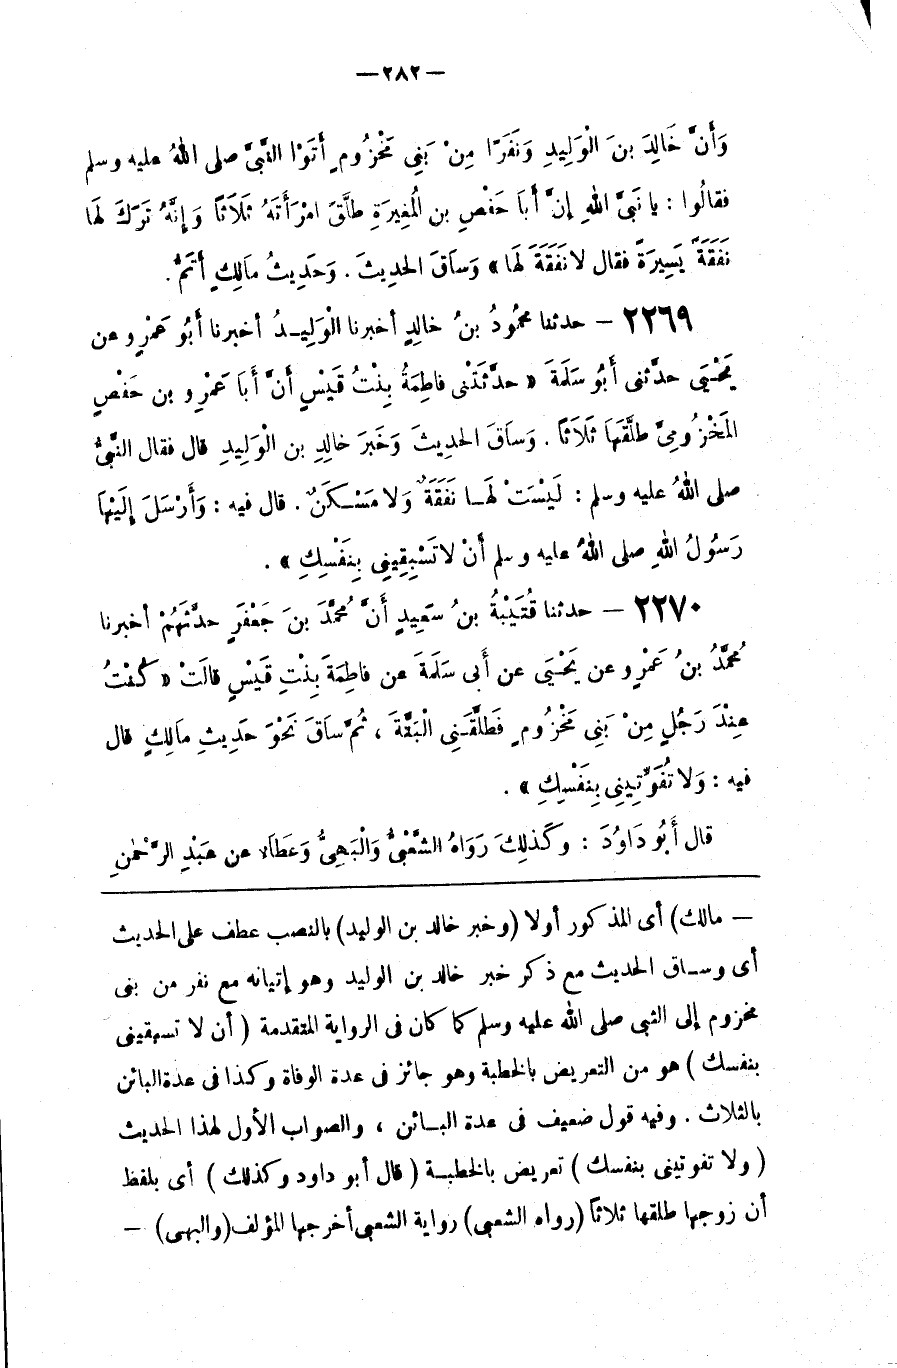 — ٢٨٢ —
وَأَنَّ خَالِدَ بنَ الْوَلِيدِ وَنَفَرًا مِنْ بَنِي مَخْزُومٍ أَتَوْا النَّبِيَّ صلى اللهُ عليه وسلم
فقالُوا : يا نَبِيَّ اللهِ إنَّ أَبَا حَفْصِ بن الْمُغِيرَةِ طَلَّقَ امْرَأَتَهُ ثَلَاثاً وَإِنَّهُ تَرَكَ لَهَا
نَفَقَةً يَسِيرَةً فقال لا نَفَقَةَ لَهَا » وَسَاقَ الحديثَ . وَحَدِيثُ مالِكٍ أَتَمُّ .
٢٢٦٩ — حدثنا محمُودُ بنُ خالِدٍ أخبرنا الْوَلِيــدُ أخبرنا أَبُو عَمْرٍو عن
يَحْيَى حدَّثنى أَبُو سَلَمَةَ « حدَّثَتْنى فاطِمَةُ بِنْتُ قَيْسٍ أنَّ أَبَا عَمْرِو بن حَفْصٍ
المَخْزُومِيَّ طَلَّقَهَا ثَلَاثاً . وَسَاقَ الحديثَ وَخَبَرَ خالِدِ بن الْوَلِيدِ قال فقال النَّبيُّ
صلى اللهُ عليه وسلم : لَيْسَتْ لَهَــا نَفَقَةٌ وَلا مَسْــكَنٌ . قال فيه : وَأَرْسَلَ إِلَيْهَا
رَسُولُ اللهِ صلى اللهُ عليه وسلم أَنْ لاتَسْبِقِينِي بِنَفْسِكِ » .
٢٢٧٠ — حدثنا قُتَيْبَةُ بنُ سَعِيدٍ أَنَّ مُحمَّدَ بنَ جَعْفَرٍ حدَّثَهُمْ أخبرنا
مُحمَّدُ بنُ عَمْرٍو عن يَحْيَى عن أَبي سَلَمَةَ عن فاطِمَةَ بِنْتِ قَيْسٍ قالَتْ « كُنْتُ
عِنْدَ رَجُلٍ مِنْ بَنِي مَخْزُومٍ فَطَلَّقَنِي الْبَتَّةَ ، ثُمَّ ساقَ نَحْوَ حَدِيثِ مالِكٍ قال
فيه : وَلا تُفَوِّتِينِي بِنَفْسِكِ » .
قال أَبُو دَاوُدَ : وَكَذلِكَ رَوَاهُ الشَّعْبيُّ وَالْبَهِيُّ وَعَطَاء عن عَبْدِ الرَّحْمٰنِ
— مالك) أى المذكور أولا (وخبر خالد بن الوليد) بالنصب عطف على الحديث
أى وســاق الحديث مع ذكر خبر خالد بن الوليد وهو إتيانه مع نفر من بنى
مخزوم إلى النبى صلى الله عليه وسلم كما كان فى الرواية المتقدمة ( أن لا تسبقينى
بنفسك ) هو من التعريض بالخطبة وهو جائز فى عدة الوفاة وكذا فى عدة البائن
بالثلاث . وفيه قول ضعيف فى عدة البــائن ، والصواب الأول لهذا الحديث
( ولا تفوتينى بنفسك ) تعريض بالخطبــة ( قال أبو داود وكذلك ) أى بلفظ
أن زوجها طلقها ثلاثاً (رواه الشعبى) رواية الشعبى أخرجها المؤلف (والبهى) —